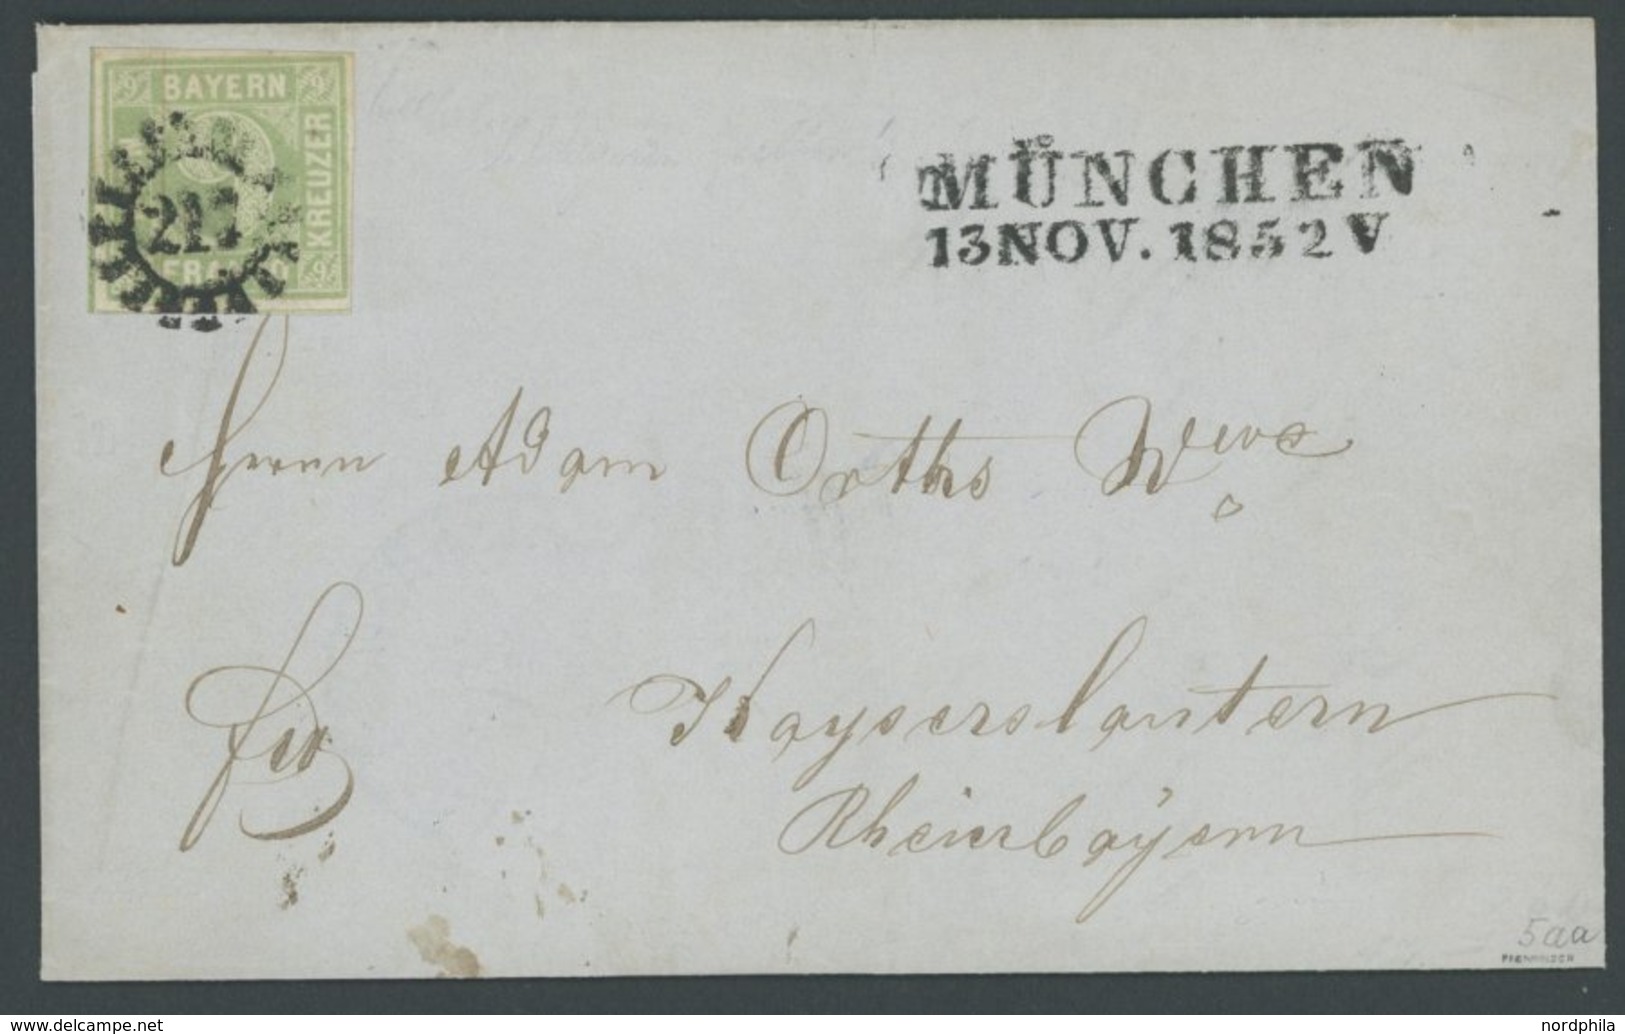 9 BAYERN 9
KREUZER
217
9
MÜNCHEN
13 NOV. 1852 V
Herrn Adam Orths Wwe
Kayserslautern
Rheinbayern
5aa
PFENNINGER
© delcampe.net
nordphila